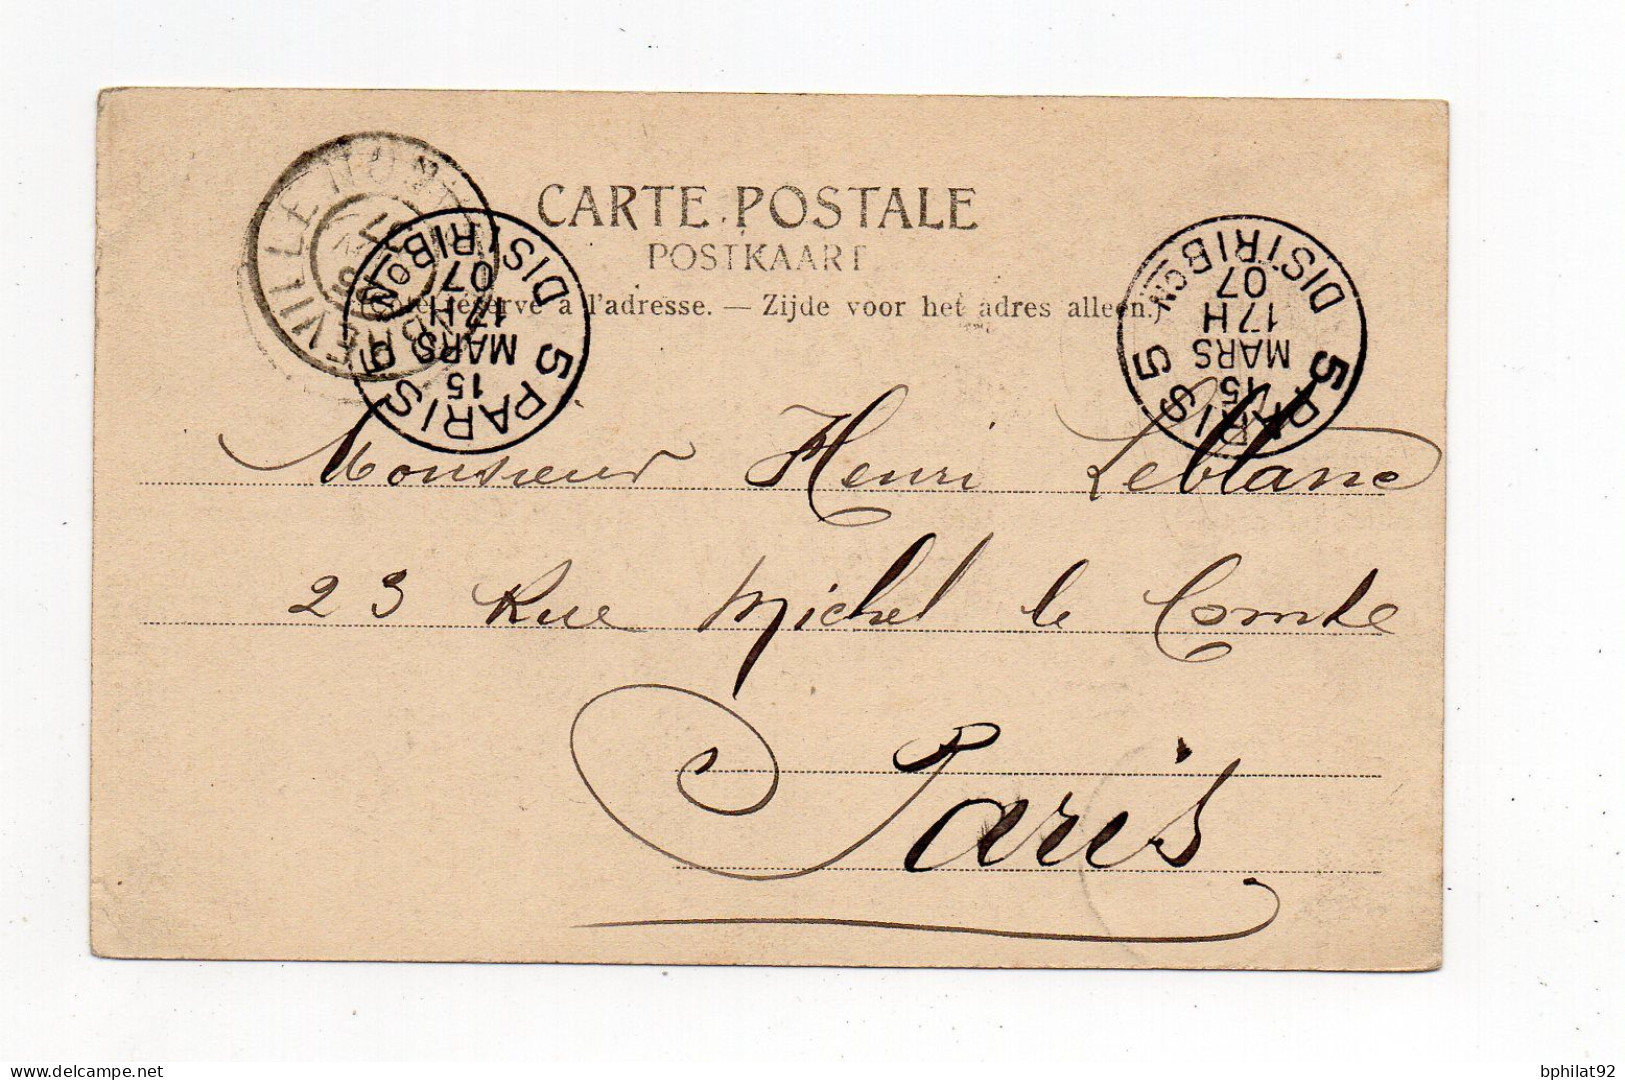 CARTE POSTALE
POSTKAART
réservé à l'adresse. — Zijde voor het adres alleen.)
5 PARIS 5
15
MARS
17H
07
DISTRIBON
5 PARIS 5
15
MARS
17H
07
DISTRIBON
Monsieur Henri Leblanc
23 Rue Michel le Comte
Paris
bphilat92